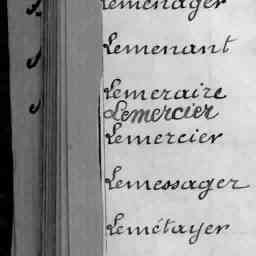 Lemenager
Lemenant
Lemeraire
Lemercier
Lemercier
Lemessager
Lemétayer